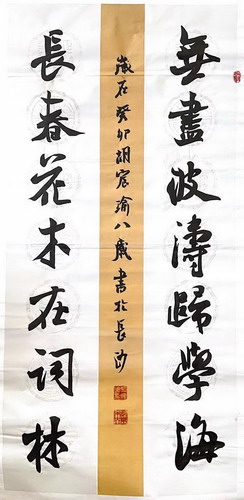 無盡波濤歸學海
長春花木在詞林
歲在癸卯胡宸瑜八歲書於長沙